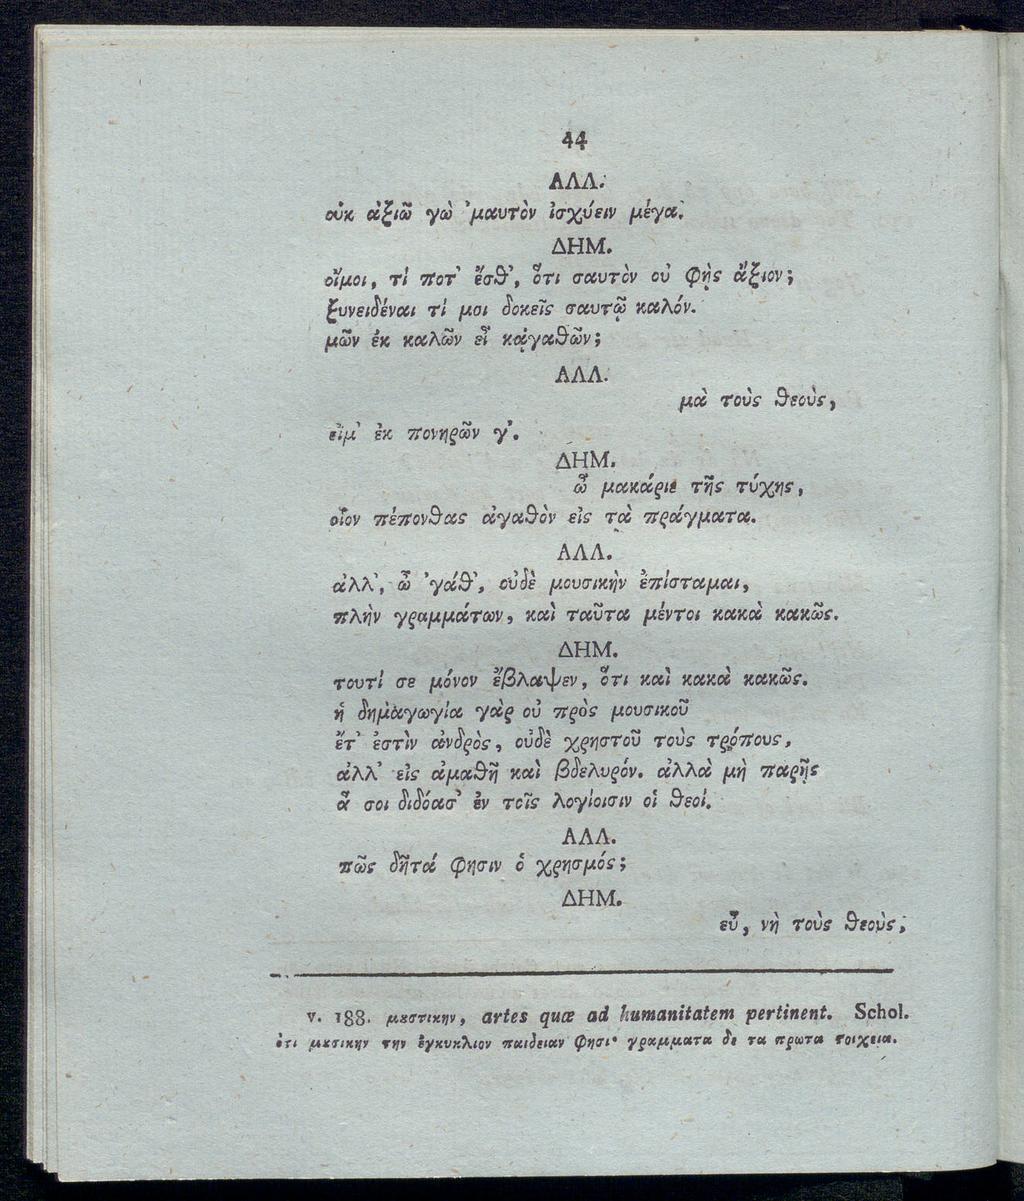 44
ΑΛΛ.
οὐκ ἀξιῶ γὼ 'μαυτὸν ἰσχύειν μέγα.
ΔΗΜ.
οἴμοι, τί ποτ' ἔσθ', ὅτι σαυτὸν οὐ φῂς ἄξιον;
ξυνειδέναι τί μοι δοκεῖς σαυτῷ καλόν.
μῶν ἐκ καλῶν εἶ κᾀγαθῶν;
ΑΛΛ.
μὰ τοὺς θεοὺς,
εἰμ' ἐκ πονηρῶν γ'.
ΔΗΜ.
ὦ μακάριε τῆς τύχης,
οἷον πέπονθας ἀγαθὸν εἰς τὰ πράγματα.
ΑΛΛ.
ἀλλ', ὦ 'γάθ', οὐδὲ μουσικὴν ἐπίσταμαι,
πλὴν γραμμάτων, καὶ ταῦτα μέντοι κακὰ κακῶς.
ΔΗΜ.
τουτί σε μόνον ἔβλαψεν, ὅτι καὶ κακὰ κακῶς.
ἡ δημαγωγία γὰρ οὐ πρὸς μουσικοῦ
ἔτ' ἐστὶν ἀνδρὸς, οὐδὲ χρηστοῦ τοὺς τρόπους,
ἀλλ' εἰς ἀμαθῆ καὶ βδελυρόν. ἀλλὰ μὴ παρῇς
ἅ σοι διδόασ' ἐν τοῖς λογίοισιν οἱ θεοί.
ΑΛΛ.
πῶς δῆτά φησιν ὁ χρησμός;
ΔΗΜ.
εὖ, νὴ τοὺς θεοὺς,
v. 188. μȣσικην, artes quæ ad humanitatem pertinent. Schol.
ὁτι μȣσικην την ἐγκυκλιον παιδειαν φησι· γραμματα δε τα πρωτα ϛοιχεια.